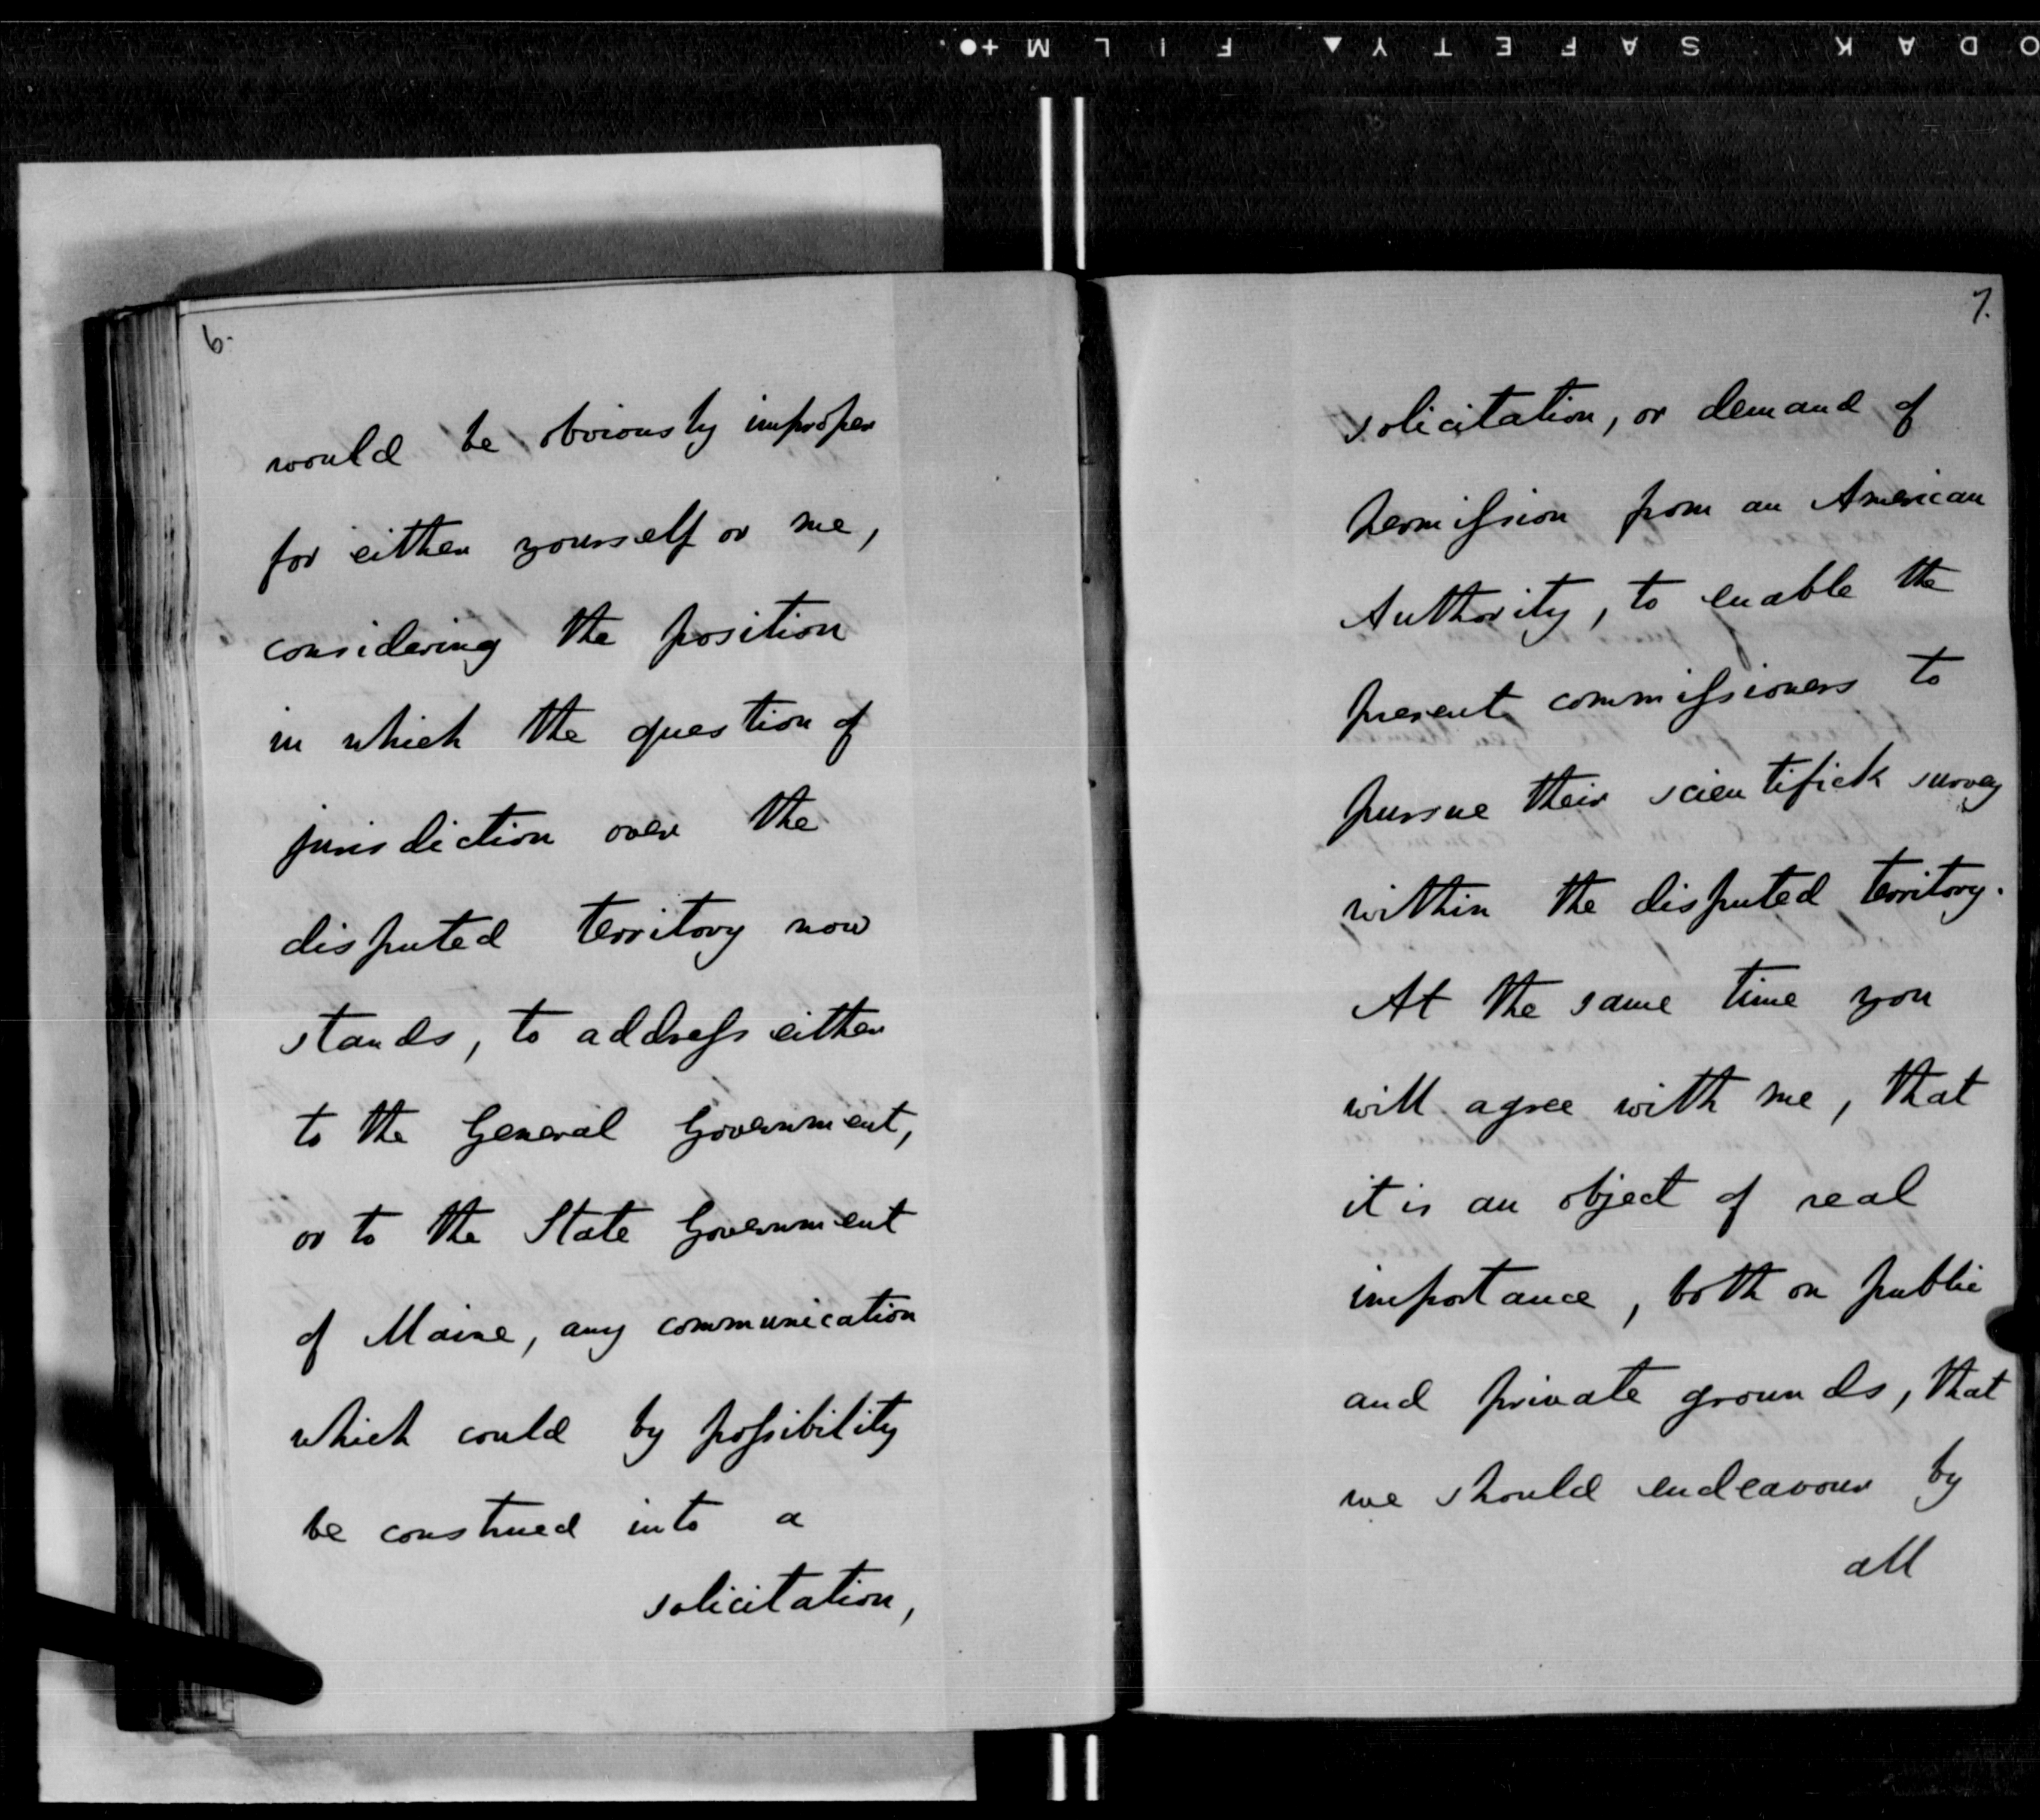 KODAK SAFETY▲ FILM +●.
6.
would be obviously improper
for either yourself or me,
considering the position
in which the question of
jurisdiction over the
disputed territory now
stands, to addreſs either
to the General Government,
or to the State Government
of Maine, any communication
which could by poſsibility
be construed into a
solicitation,
7.
solicitation, or demand of
permiſsion from an American
Authority, to enable the
present commiſsioners to
pursue their scientifick survey
within the disputed territory.
At the same time you
will agree with me, that
it is an object of real
importance, both on public
and private grounds, that
we should endeavour by
all